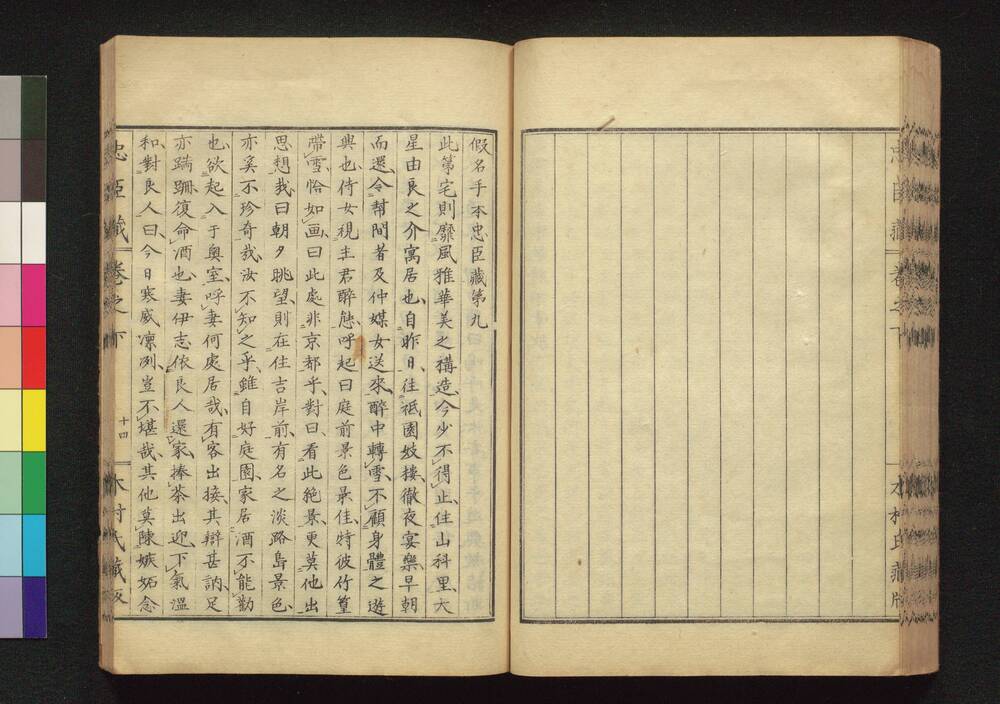 忠臣藏
卷之下
木村氏藏版
假名手本忠臣藏第九
此第宅則靡風雅華美之構造今少不得止住山科里大
星由良之介寓居也自昨日往祗園妓樓徹夜宴樂早朝
而還令幇間者及仲媒女送來醉中轉雪不顧身體之遊
興也侍女視主君醉態呼起曰庭前景色最佳特彼竹篁
帶雪恰如画曰此處非京都乎對曰看此絶景更莫他出
思想哉曰朝夕眺望則在住吉岸前有名之淡路島景色
亦奚不珍奇哉汝不知之乎雖自好庭園家居酒不能勸
也欲起入于奥室呼妻何處居哉有客出接其辯甚訥足
亦蹣跚復命酒也妻伊志依良人還家捧茶出迎下氣溫
和對良人曰今日寒威凛冽豈不堪哉其他莫陳嫉妬念
忠臣藏
卷之下
十四
木村氏藏版